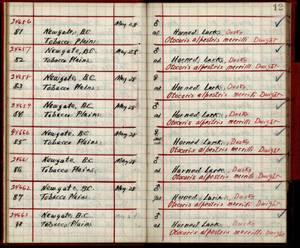 12
24656 Newgate, B.C. May 28 Horned Lark, Dusky
81 Tobacco Plains. ad Otocoris alpestris merrilli Dwight
24657 Newgate, B.C. May 28 Horned Lark, Dusky
82 Tobacco Plains. ad Otocoris alpestris merrilli Dwight
24658 Newgate, B.C. May 28 Horned Lark, Dusky
83 Tobacco Plains. ad Otocoris alpestris merrilli Dwight
24659 Newgate, B.C. May 28 Horned Lark, Dusky
84 Tobacco Plains. ad Otocoris alpestris merrilli Dwight
24660 Newgate, B.C. May 28 Horned Lark, Dusky
85 Tobacco Plains. Otocoris alpestris merrilli Dwight
24661 Newgate, B.C. May 28 Horned Lark, Dusky
86 Tobacco Plains. ad Otocoris alpestris merrilli Dwight
24662 Newgate, B.C. May 28 Horned Lark, Dusky
87 Tobacco Plains. Otocoris alpestris merrilli Dwight
24663 Newgate, B.C. Horned Lark, Dusky
Tobacco Plains. ad Otocoris alpestris merrilli Dwight